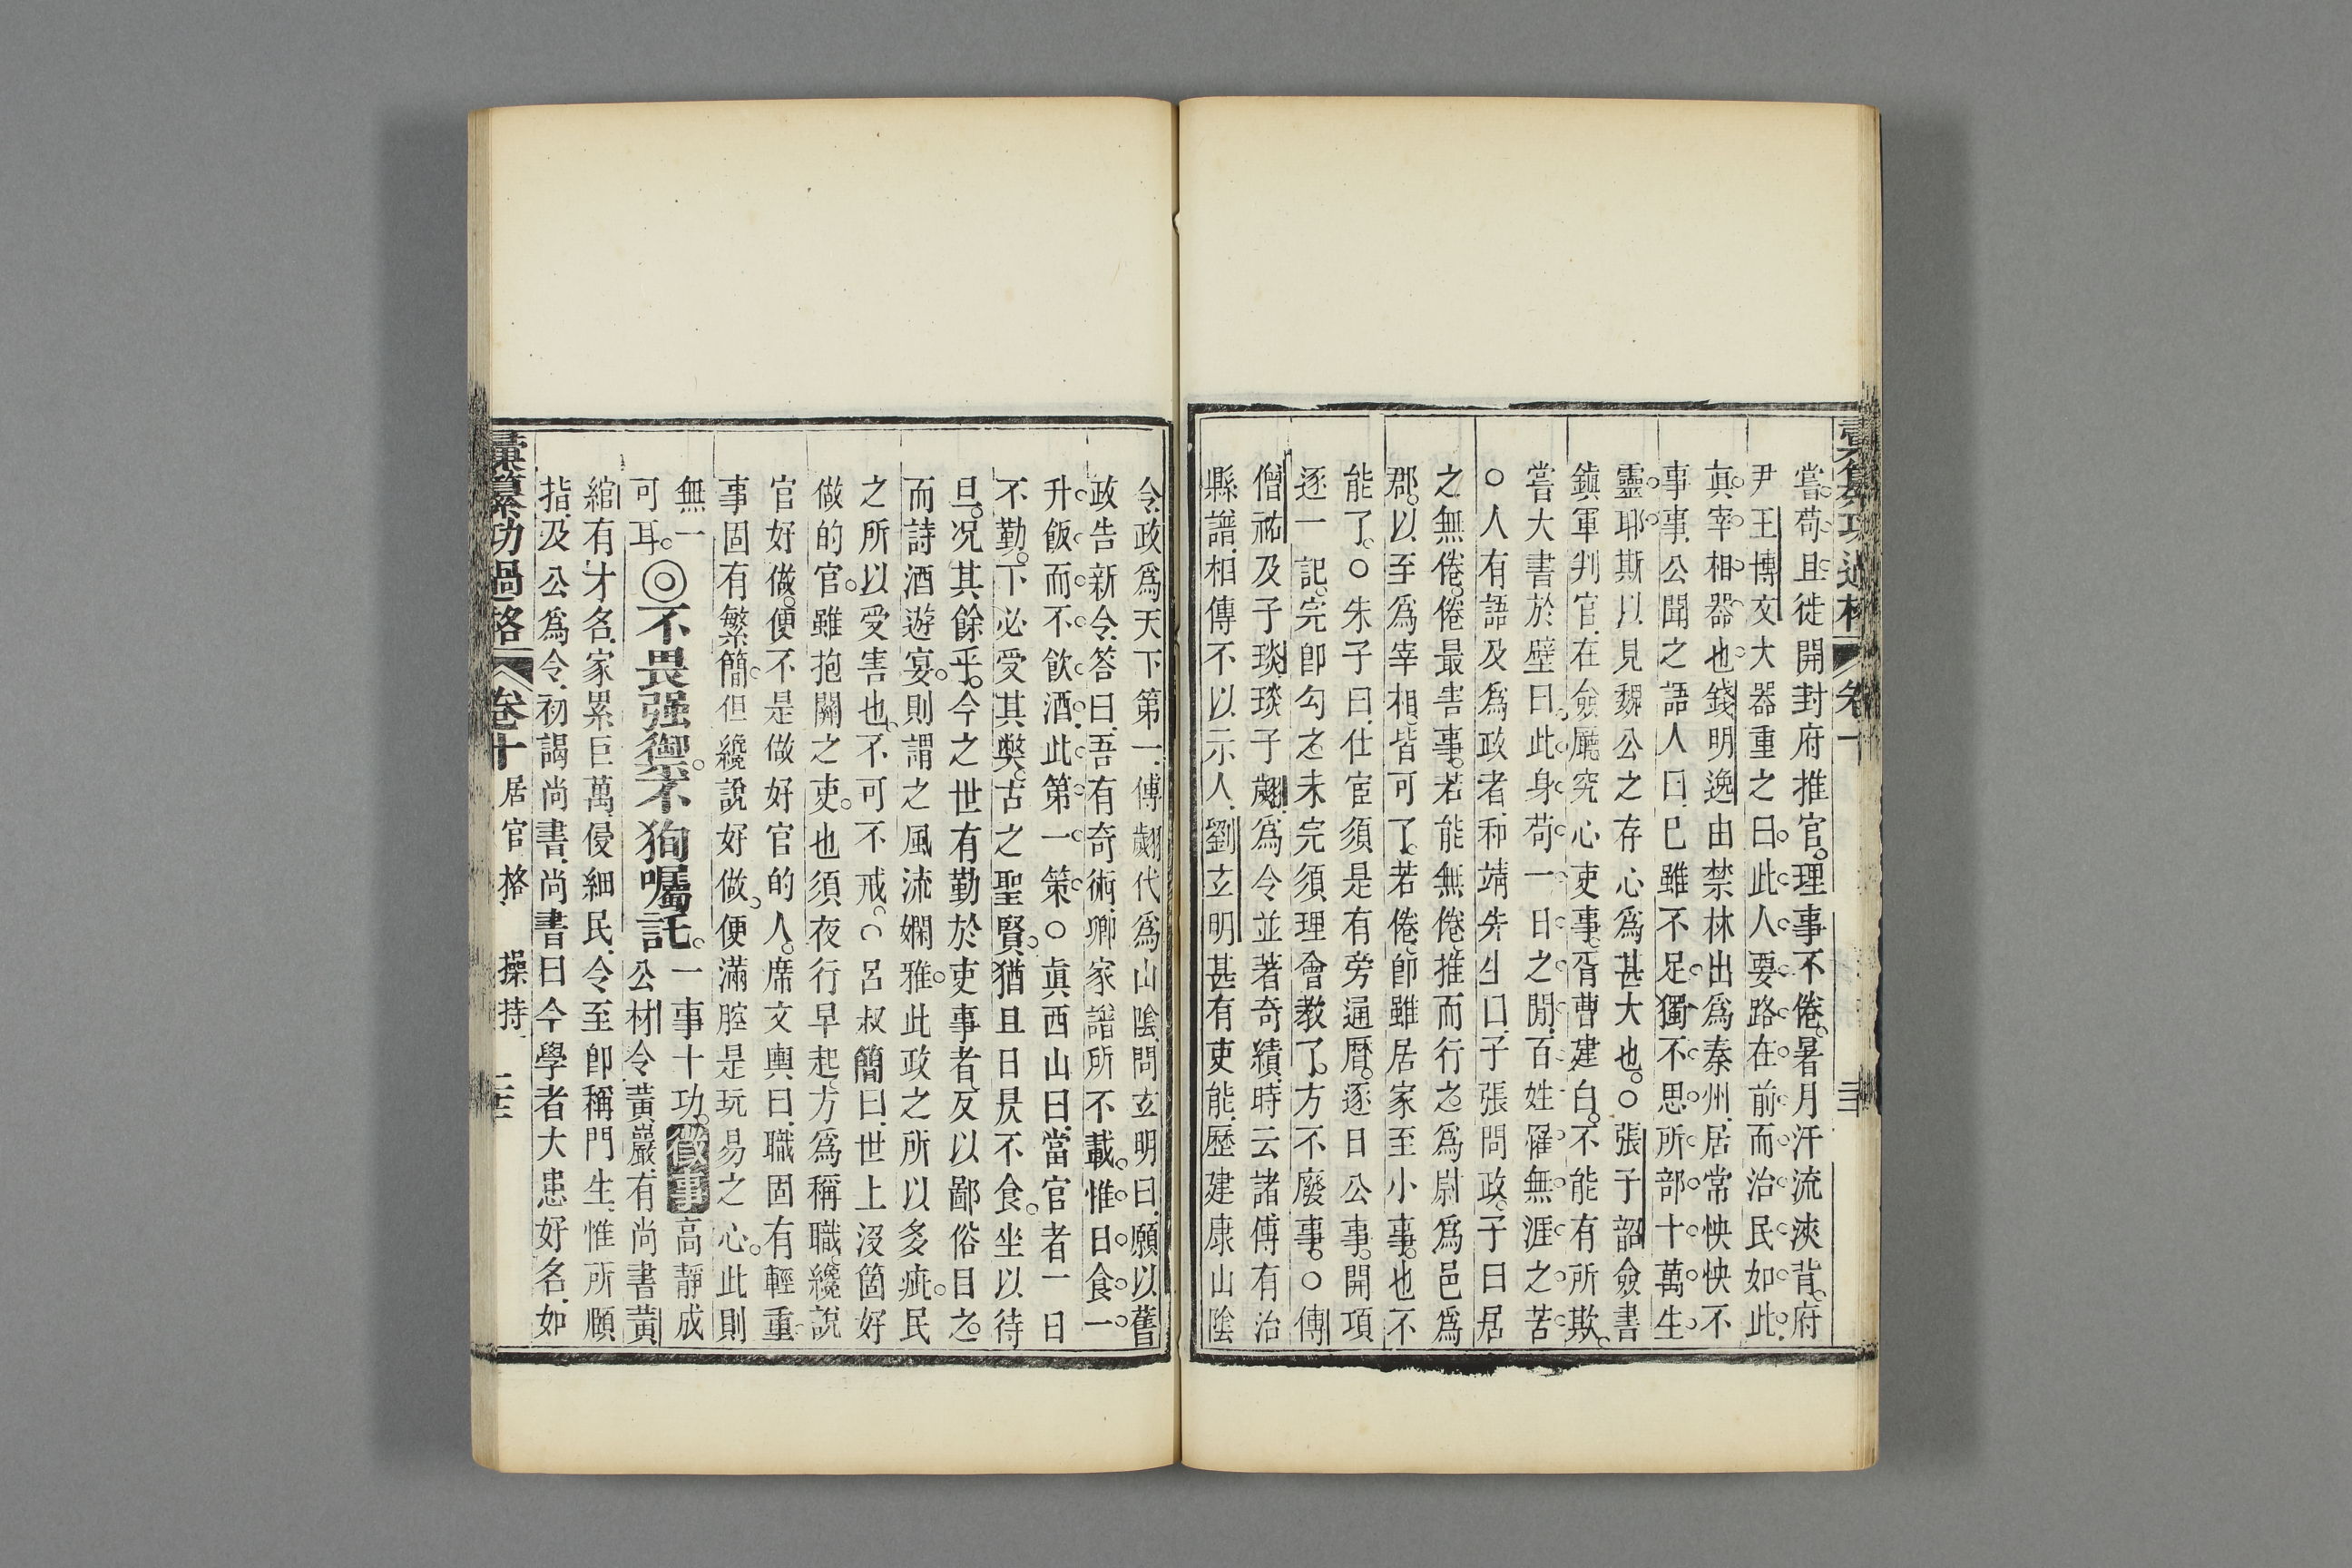 彙纂功過格 卷十
嘗苟且徙開封府推官理事不倦暑月汗流浹背府
尹王博文大器重之曰此人要路在前而治民如此
真宰相器也錢明逸由禁林出為秦州居常怏怏不
事事公聞之語人曰已雖不足獨不思所部十萬生
靈耶斯以見魏公之存心為甚大也○張子韶僉書
鎮軍判官在僉廳究心吏事胥曹建白不能有所欺
嘗大書於壁曰此身苟一日之閒百姓罹無涯之苦
○人有語及為政者和靖先生曰子張問政子曰居
之無倦倦最害事若能無倦推而行之為尉為邑為
郡以至為宰相皆可了若倦卽雖居家至小事也不
能了○朱子曰仕宦須是有旁通曆逐日公事開項
逐一記完卽勾之未完須理會教了方不廢事○傅
僧祐及子琰琰子翽為令並著奇績時云諸傅有治
縣譜相傳不以示人劉玄明甚有吏能歷建康山陰
令政爲天下第一傅翽代爲山陰問玄明曰願以舊
政告新令答曰吾有奇術卿家譜所不載惟日食一
升飯而不飲酒此第一策○眞西山曰當官者一日
不勤下必受其獘古之聖賢猶且日昃不食坐以待
旦况其餘乎今之世有勤於吏事者反以鄙俗目之
而詩酒遊宴則謂之風流嫻雅此政之所以多疵民
之所以受害也不可不戒○呂叔簡曰世上没箇好
做的官雖抱關之吏也須夜行早起方爲稱職纔說
官好做便不是做好官的人○席文輿曰職固有輕重
事固有繁簡但纔說好做便滿腔是玩易之心此則
無一
可耳◎不畏强禦不狥囑託一事十功徵事高靜成
公材令黃巖有尚書黃
綰有才名家累巨萬侵細民令至卽稱門生惟所願
指及公爲令初謁尚書尚書曰今學者大患好名如
彙纂功過格 卷十 居官格 操持